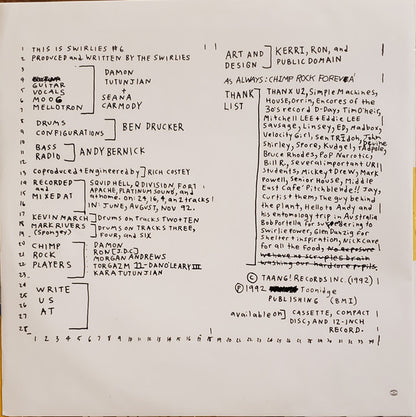 1 THIS IS SWIRLIES #6
2 PRODUCED and WRITTEN BY THE SWIRLIES
3
4
5 GUITAR
6 VOCALS
7 MOOG
MELLOTRON
DAMON
TUTUNJIAN
+
SEANA
CARMODY
8 DRUMS
9 CONFIGURATIONS
BEN DRUCKER
10 BASS
11 RADIO
ANDY BERNICK
12
13 COPRODUCED + ENGINEERED by RICH COSTEY
14 RECORDED
15 and
16 MIXED AT
SQUID HELL, Q DIVISION, FORT
APACHE, PLATINUM SOUND, and
at home. on: 24, 16, 4, an 2 tracks!
IN: JUNE, AUGUST, NOV 92.
17 KEVIN MARCH
Drums on Tracks TWO + TEN
18 MARK RIVERS
19 (sponges)
DRUMS on TRACKS THREE,
FOUR, and SIX
20 CHIMP
21 ROCK
22 PLAYERS
DAMON
RON (J.D.C)
MORGAN ANDREWS
TORGAZM II - DAN O'LEARY III
KARA TUTUNJIAN
23
24 WRITE
25 US
26 AT
27
28
1 2 3 4 5 6 7 8 9 10 11 12 13 14 15 16
ART AND
DESIGN
KERRI, RON, and
PUBLIC DOMAIN
AS ALWAYS: CHIMP ROCK FOREVA'
THANK
LIST
THANX U2, Simple Machines,
House, Orrin, Encores of the
30's record D-Days, Tim O'Heir,
Mitchell LEE + Eddie LEE
Sausage, Linsey, ED, Madbox,
Velocity Girl, Sen TRIdoh, John
Shirley, Spore, Kudgel, Tadpole,
Bruce Rhodes, Pop Narcotic,
Bill R, Several important URI
Students, Mickey + Drew, Mark
Powell, Senior House, Middle
East Café Pitchblende!! Jay
Curtis + them; the guy behind
the plant, Hello to Andy and
his entomology trip in Australia
Bob Portella for surrendering to
Swirlie Power, Glen Danzig for
Shelter + inspiration, Nick Cave
for all the food,
Ⓟ TAANG! RECORDS INC. (1992)
© 1992 Toonidge
PUBLISHING (BMI)
available on CASSETTE, COMPACT
DISC, AND 12-INCH
RECORD.